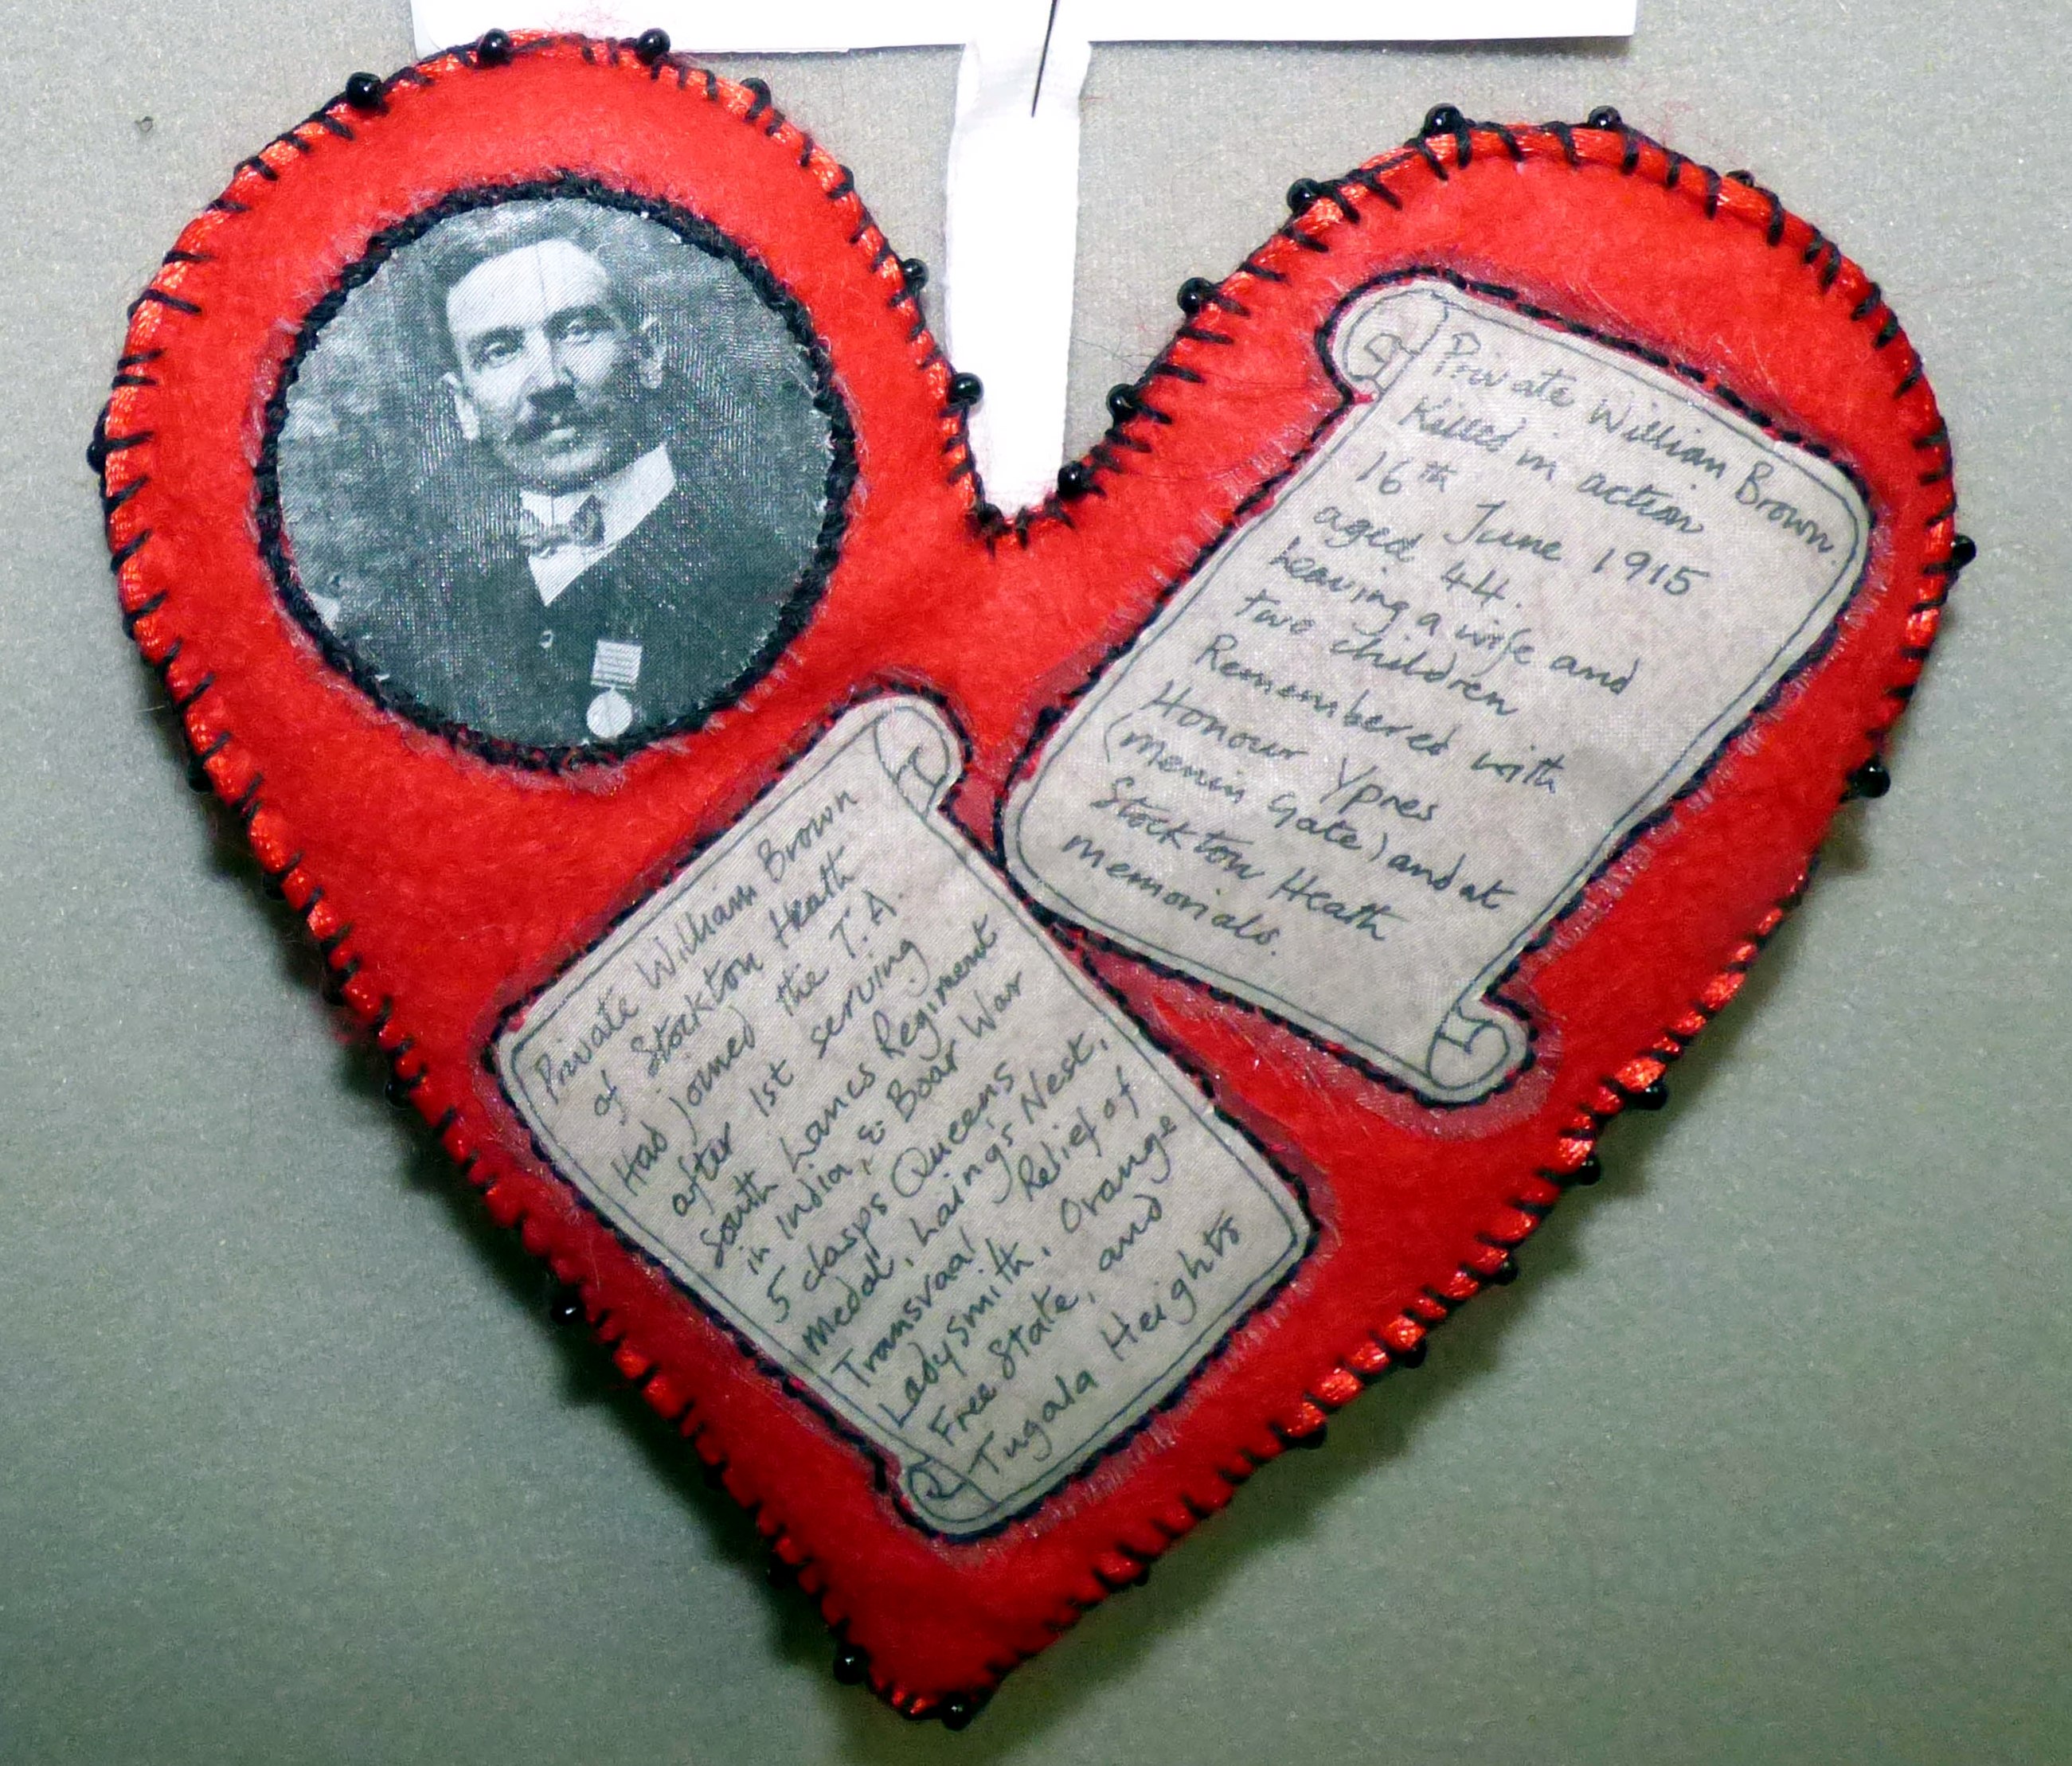 Private William Brown
of Stockton Heath
Had joined the T.A.
after 1st serving
South Lancs Regiment
in India, & Boar War
5 clasps Queens
medal, Laing's Nest,
Transvaal Relief of
Ladysmith, Orange
Free State, and
Tugala Heights
Private William Brown.
Killed in action
16th June 1915
aged 44.
Leaving a wife and
two children
Remembered with
Honour Ypres
(Menin Gate) and at
Stockton Heath
memorials.